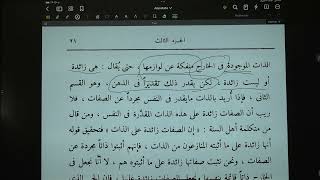 الجزء الثالث
٢١
الذات الموجودة في الخارج منفكة عن لوازمها ، حتى يُقال : هي زائدة
أو ليست زائدة ، لكن يقدر ذلك تقديراً في الذهن ، وهو القسم
الثاني ، فإذا أُريد بالذات ما يقدر في النفس مجرداً عن الصفات ، فلا
ريب أن الصفات زائدة على هذه الذات المقدّرة في النفس ، ومن قال
من متكلمة أهل السنة : إن الصفات زائدة على الذات ، فتحقيق قوله
أنها زائدة على ما أثبته المنازعون من الذات ، فإنهم أثبتوا ذاتاً مجردة عن
الصفات ، ونحن نثبت صفاتها زائدة على ما أثبتوه هم ، لا أنّا نجعل في